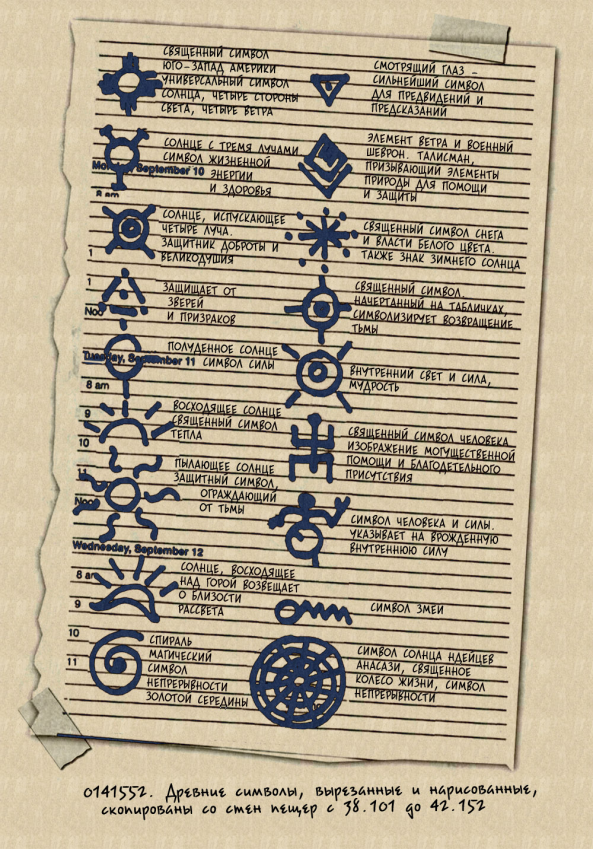 СВЯЩЕННЫЙ СИМВОЛ
ЮГО-ЗАПАД АМЕРИКИ
УНИВЕРСАЛЬНЫЙ СИМВОЛ
СОЛНЦА, ЧЕТЫРЕ СТОРОНЫ
СВЕТА, ЧЕТЫРЕ ВЕТРА
СМОТРЯЩИЙ ГЛАЗ -
СИЛЬНЕЙШИЙ СИМВОЛ
ДЛЯ ПРЕДВИДЕНИЙ И
ПРЕДСКАЗАНИЙ
СОЛНЦЕ С ТРЕМЯ ЛУЧАМИ
СИМВОЛ ЖИЗНЕННОЙ
ЭНЕРГИИ
И ЗДОРОВЬЯ
Monday, September 10
8 am
ЭЛЕМЕНТ ВЕТРА И ВОЕННЫЙ
ШЕВРОН. ТАЛИСМАН,
ПРИЗЫВАЮЩИЙ ЭЛЕМЕНТЫ
ПРИРОДЫ ДЛЯ ПОМОЩИ
И ЗАЩИТЫ
СОЛНЦЕ, ИСПУСКАЮЩЕЕ
ЧЕТЫРЕ ЛУЧА.
ЗАЩИТНИК ДОБРОТЫ И
ВЕЛИКОДУШИЯ
1
СВЯЩЕННЫЙ СИМВОЛ СНЕГА
И ВЛАСТИ БЕЛОГО ЦВЕТА.
ТАКЖЕ ЗНАК ЗИМНЕГО СОЛНЦА
1
ЗАЩИЩАЕТ ОТ
ЗВЕРЕЙ
И ПРИЗРАКОВ
Noo
СВЯЩЕННЫЙ СИМВОЛ.
НАЧЕРТАННЫЙ НА ТАБЛИЧКАХ,
СИМВОЛИЗИРУЕТ ВОЗВРАЩЕНИЕ
ТЬМЫ
ПОЛУДЕННОЕ СОЛНЦЕ
Tuesday, September 11 СИМВОЛ СИЛЫ
8 am
ВНУТРЕННИЙ СВЕТ И СИЛА,
МУДРОСТЬ
9
ВОСХОДЯЩЕЕ СОЛНЦЕ
СВЯЩЕННЫЙ СИМВОЛ
ТЕПЛА
10
СВЯЩЕННЫЙ СИМВОЛ ЧЕЛОВЕКА
ИЗОБРАЖЕНИЕ МОГУЩЕСТВЕННОЙ
ПОМОЩИ И БЛАГОДЕТЕЛЬНОГО
ПРИСУТСТВИЯ
11
ПЫЛАЮЩЕЕ СОЛНЦЕ
ЗАЩИТНЫЙ СИМВОЛ,
ОГРАЖДАЮЩИЙ
ОТ ТЬМЫ
Noo
СИМВОЛ ЧЕЛОВЕКА И СИЛЫ.
УКАЗЫВАЕТ НА ВРОЖДЕННУЮ
ВНУТРЕННЮЮ СИЛУ
Wednesday, September 12
8 am
СОЛНЦЕ, ВОСХОДЯЩЕЕ
НАД ГОРОЙ ВОЗВЕЩАЕТ
О БЛИЗОСТИ
РАССВЕТА
9
СИМВОЛ ЗМЕИ
10
СПИРАЛЬ
МАГИЧЕСКИЙ
СИМВОЛ
НЕПРЕРЫВНОСТИ
ЗОЛОТОЙ СЕРЕДИНЫ
11
СИМВОЛ СОЛНЦА НДЕЙЦЕВ
АНАСАЗИ, СВЯЩЕННОЕ
КОЛЕСО ЖИЗНИ, СИМВОЛ
НЕПРЕРЫВНОСТИ
0141552. Древние символы, вырезанные и нарисованные,
скопированы со стен пещер с 38.101 до 42.152